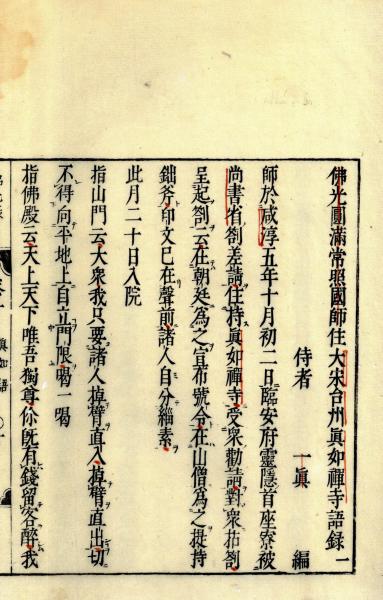 佛光圓滿常照國師住大宋台州眞如禪寺語錄一
侍者 一眞 編
師於咸淳五年十月初二日臨安府靈隱首座寮被
尚書省劄差請住持眞如禪寺受衆勸請對衆拈劄
呈起劄云在朝廷爲之宣布號令在山僧爲之提持
鈯斧印文已在聲前諸人自分緇素
此月二十日入院
指山門云大衆我只要諸人掉臂直入掉臂直出切
不得向平地上自立門限喝一喝
指佛殿云天上天下唯吾獨尊你旣有錢留客醉我
眞如語